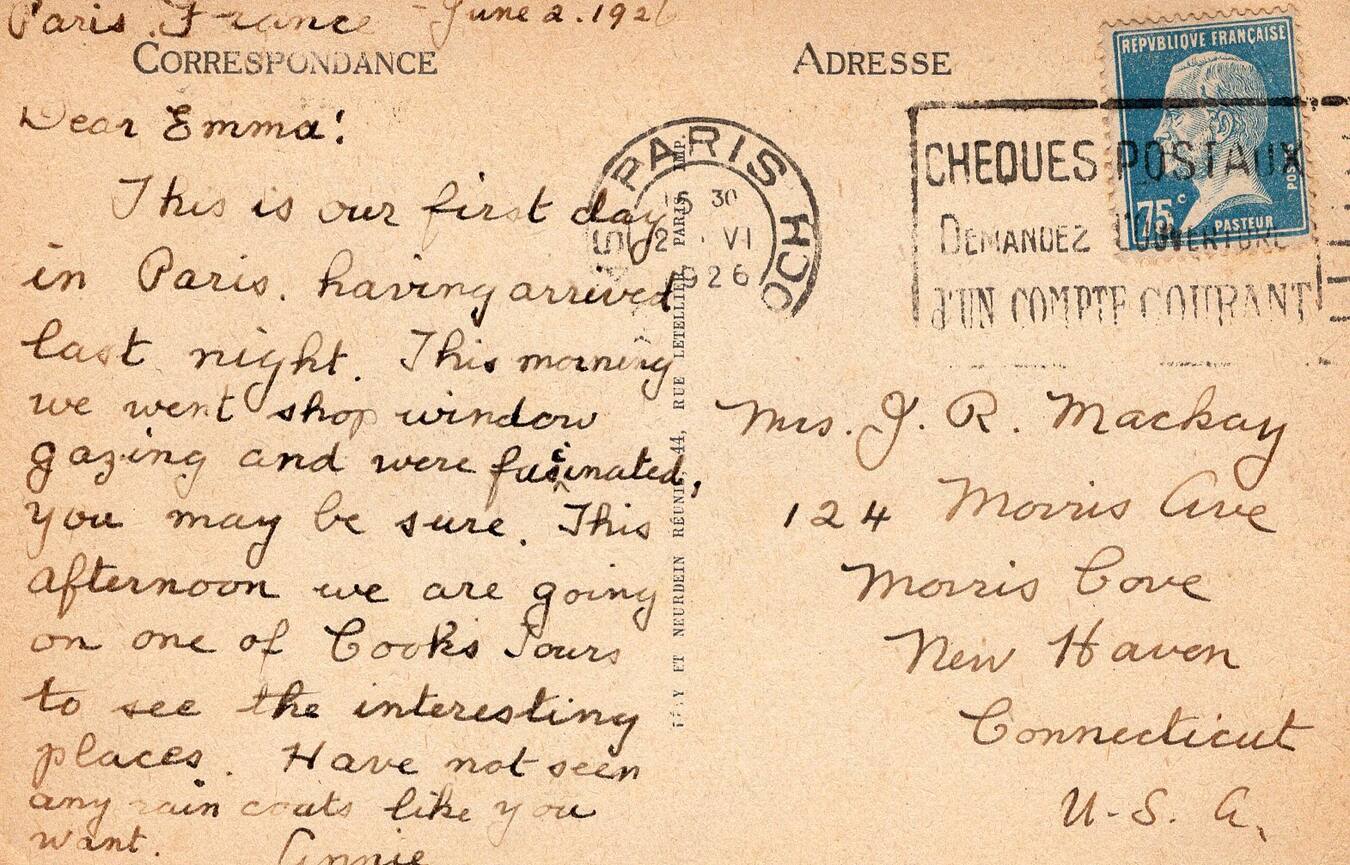 Paris, France - June 2. 1926
CORRESPONDANCE
Dear Emma!
This is our first day
in Paris. having arrived
last night. This morning
we went shop window
gazing and were fascinated,
you may be sure. This
afternoon we are going
on one of Cooks Tours
to see the interesting
places. Have not seen
any rain coats like you
want.
Annie
ET NEURDEIN RÉUNIS, 44, RUE LETELLIER, PARIS IMP.
PARIS
HOCHE
16 30
2 VI
1926
ADRESSE
REPVBLIQVE FRANÇAISE
POSTES
75c
PASTEUR
CHEQUES POSTAUX
DEMANDEZ L'OUVERTURE
D'UN COMPTE COURANT
Mrs. J. R. Mackay
124 Morris Ave
Morris Cove
New Haven
Connecticut
U-S. A.